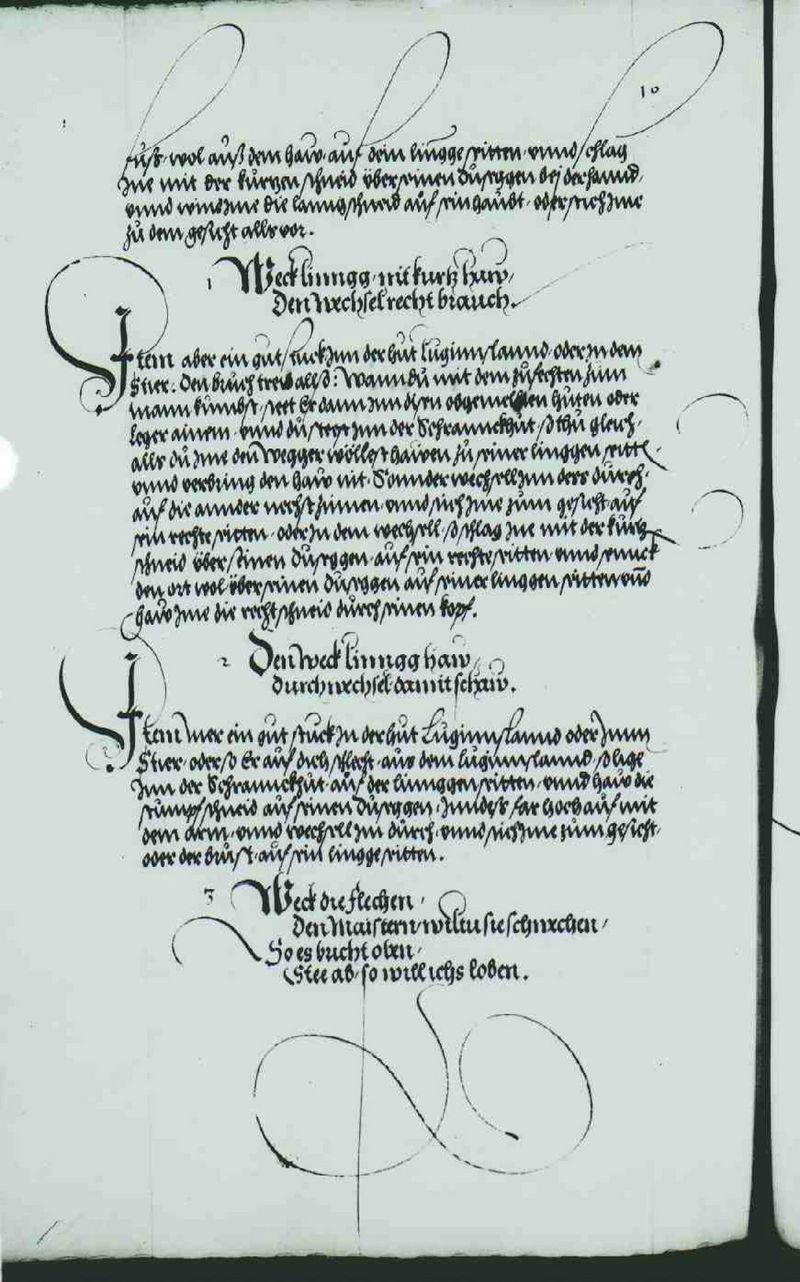 10
fuß wol auß dem haw auf dein lingge seitten unnd schlag
Ine mit der kurtzen schneid über seinen Duseggen bei der hannd,
unnd wind Ime die lanng schneid auf sein haubt, oder stich Ime
zu dem gesicht alls vor.
1 Weck linngg, nit kurtz haw,
Den wechsel recht brauch.
Item aber ein gut stuck Inn der hut Luginnslannd, oder In dem
Stier. Den bruch treib allso: Wann du mit dem zufechten zum
mann kumbst, steet Er dann Inn disen obgemelten huten oder
leger ainem, unnd du steest Inn der Schrannckhut, so thu gleich
alls du Ime den Wegger wöllest hawen zu seiner linggen seitt,
unnd verbring den haw nit, Sonnder wechsell Inn ders durch,
auf die annder nechst zinnen, unnd stich Ime zum gesicht auf
sein rechte seitten, oder In dem wechsell, so schlag Ine mit der kurtz
schneid über seinen Duseggen auf sein rechte seitten unnd
den ort wol über seinen Duseggen auf seiner linggen seitten unnd
haw Ime die recht schneid durch seinen kopf.
2 Den weck linngg haw,
durchwechsel damit schaw.
Item Mer ein gut stuck In der hut Luginnslannd oder Inm
Stier, oder so Er auf dich schlecht aus dem luginnslannd, so lige
Inn der Schrannckhut auf der linnggen seitten, unnd haw die
stumpf schneid auf seinen Duseggen, Inndes far hoch auf mit
dem arm, unnd wechsell Im durch, unnd stich Ime zum gesicht,
oder der brust, auf sein lingge seitten.
3 Weck die flechen,
Den Maistern wiltu sie schwechen,
So es bucht oben,
Stee ab, so will ichs loben.